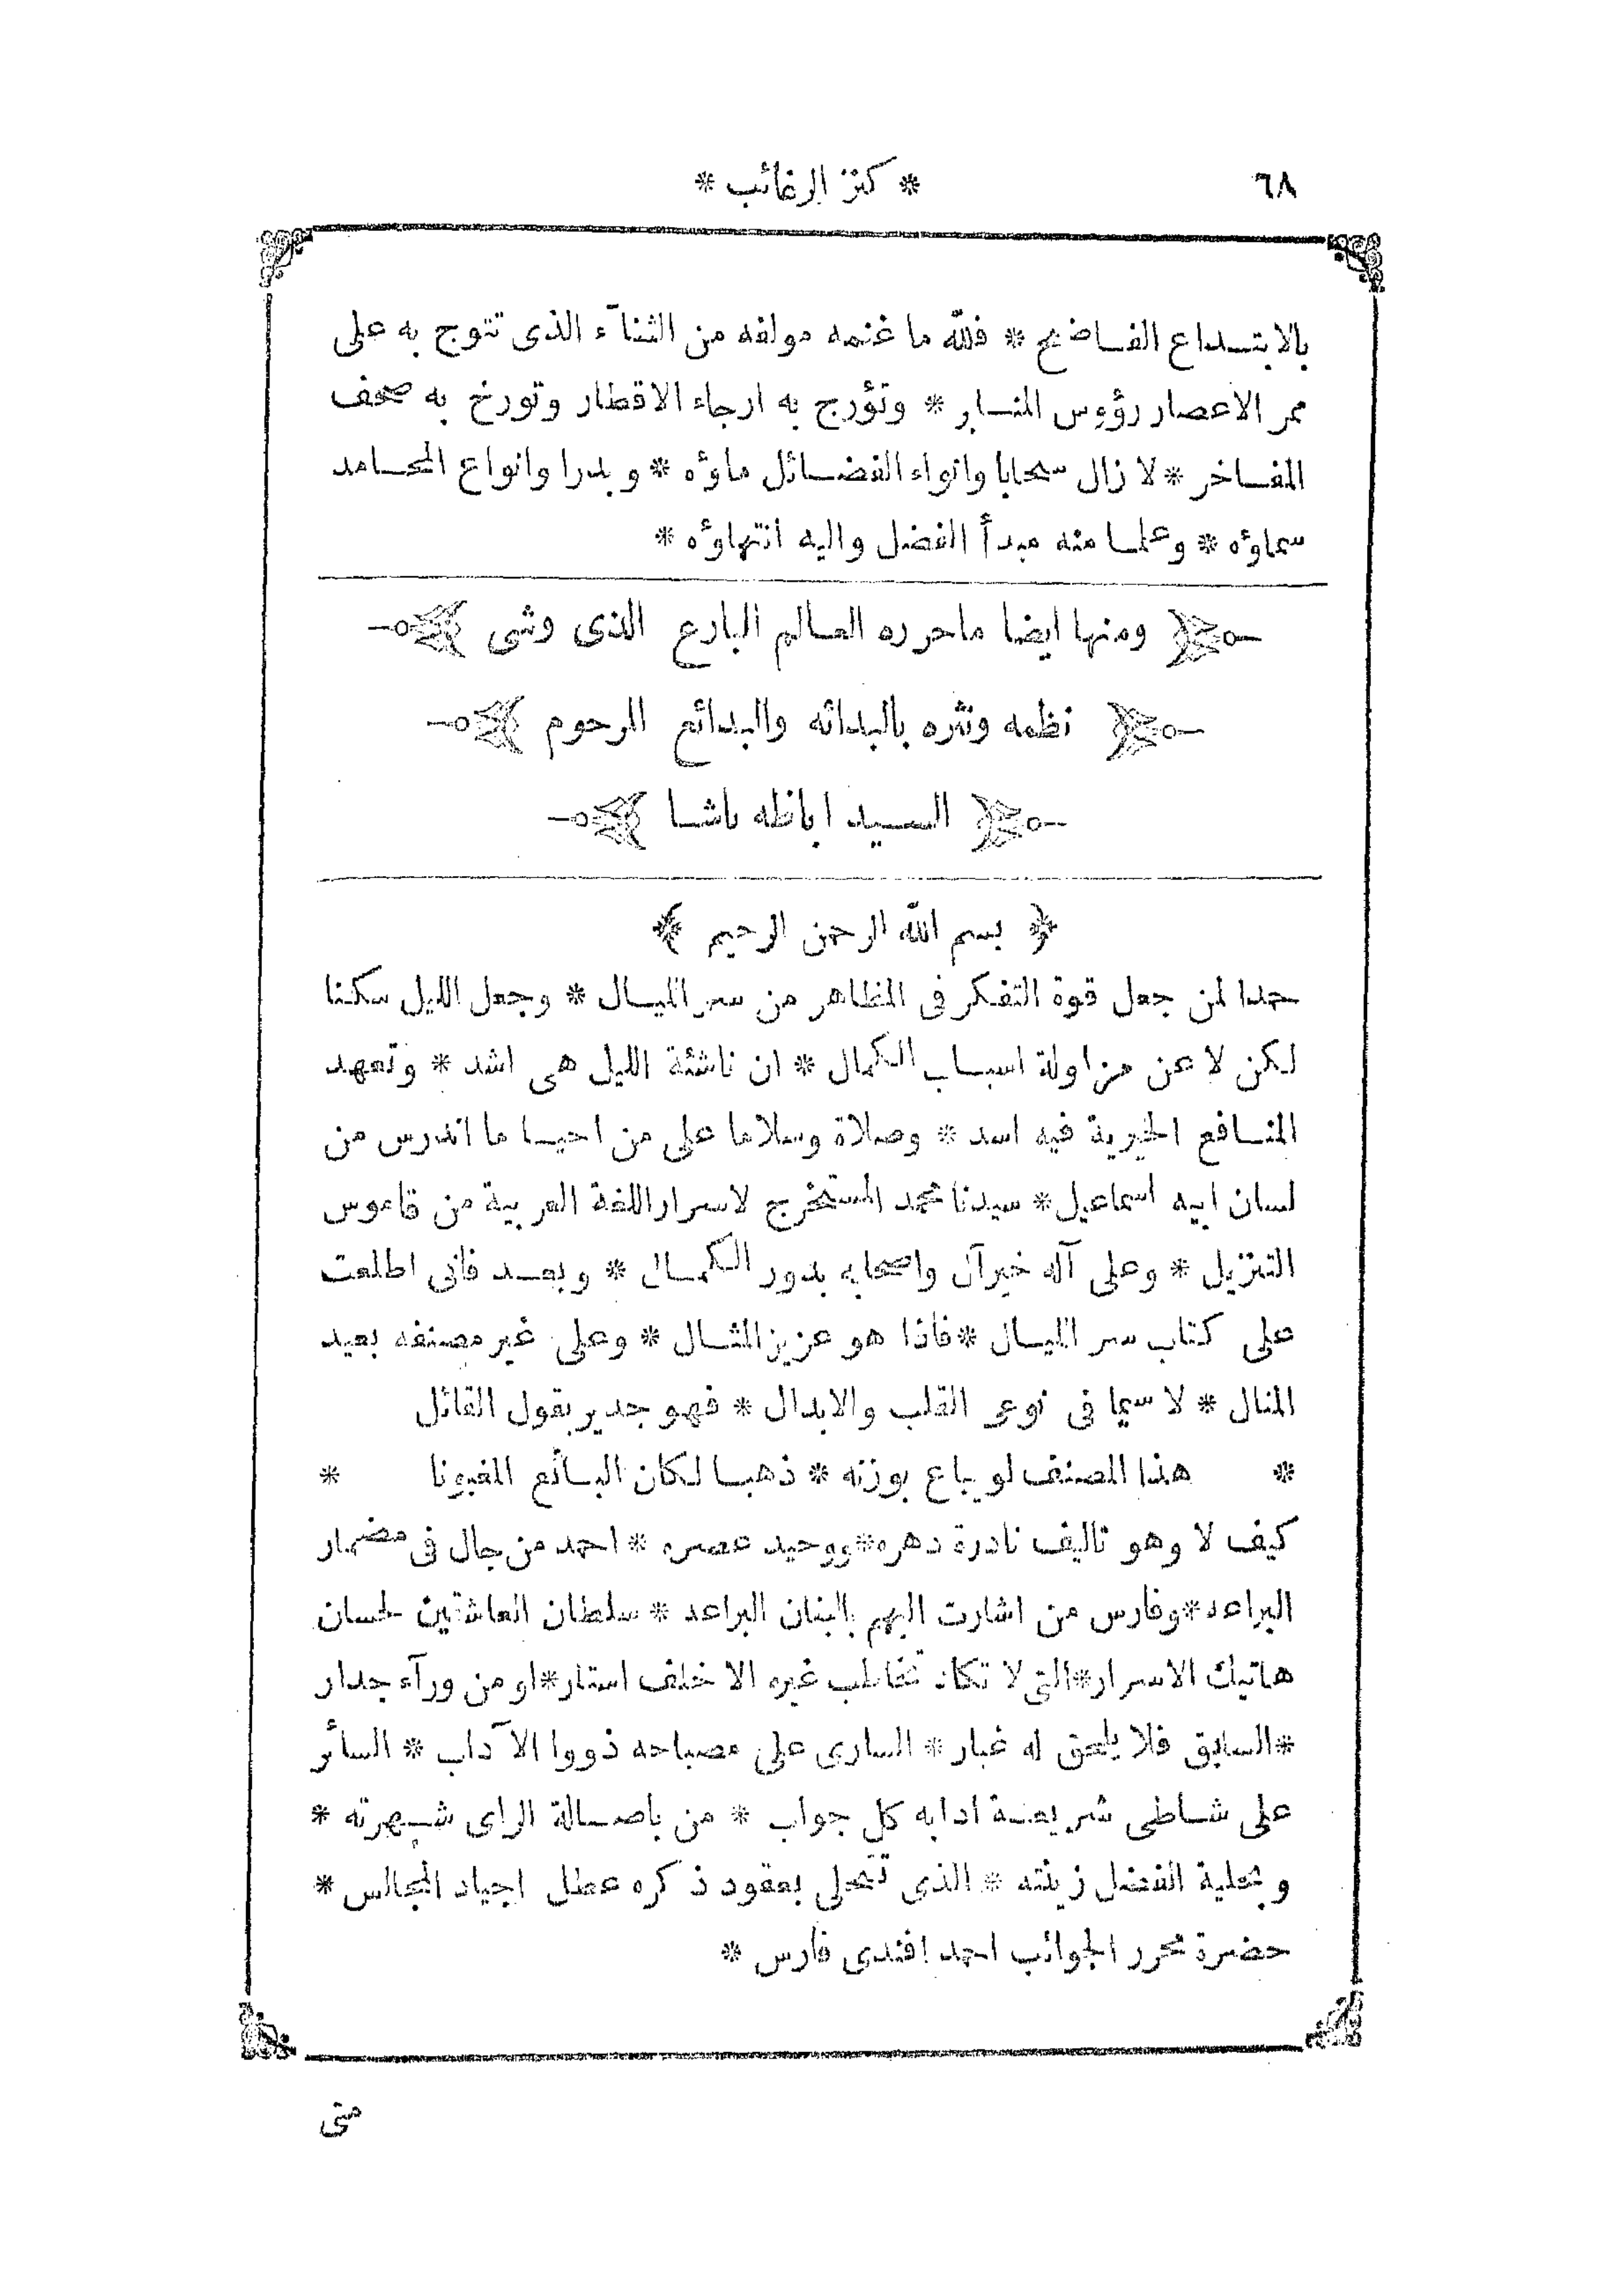 ٦٨
* كنز الرغائب *
بالابتداع الفاضح * فلله ما غنمه مولفه من الثنآء الذى تتوج به على
ممر الاعصار رؤوس المنابر * وتؤرج به ارجاء الاقطار وتورخ به صحف
المفاخر * لا زال سحابا وانواء الفضائل ماؤه * وبدرا وانواع المحامد
سماؤه * وعلما منه مبدأ الفضل واليه انتهاؤه *
ومنها ايضا ماحرره العالم البارع الذى وشى
نظمه ونثره بالبدائه والبدائع المرحوم
السيد اباظه باشا
﴿ بسم الله الرحمن الرحيم ﴾
حمدا لمن جعل قوة التفكر فى المظاهر من سر الليال * وجعل الليل سكنا
لكن لا عن مزاولة اسباب الكمال * ان ناشئة الليل هى اشد * وتعهد
المنافع الخيرية فيه اسد * وصلاة وسلاما على من احيا ما اندرس من
لسان ابيه اسماعيل * سيدنا محمد المستخرج لاسرار اللغة العربية من قاموس
التنزيل * وعلى آله خير آل واصحابه بدور الكمال * وبعد فانى اطلعت
على كتاب سر الليال * فاذا هو عزيز المثال * وعلى غير مصنفه بعيد
المنال * لا سيما فى نوعى القلب والابدال * فهو جدير بقول القائل
* هذا المصنف لو يباع بوزنه * ذهبا لكان البائع المغبونا *
كيف لا وهو تاليف نادرة دهره * ووحيد عصره * احمد من جال فى مضمار
البراعه * وفارس من اشارت اليهم بالبنان البراعه * سلطان العاشقين لحسان
هاتيك الاسرار * التى لا تكاد تخاطب غيره الا خلف استار * او من ورآء جدار
* السابق فلا يلحق له غبار * السارى على مصباحه ذووا الآداب * السائر
على شاطى شريعة ادابه كل جواب * من باصالة الراى شهرته *
وبحلية الفضل زينته * الذى تتحلى بعقود ذكره عطل اجياد المجالس *
حضرة محرر الجوائب احمد افندى فارس *
متى